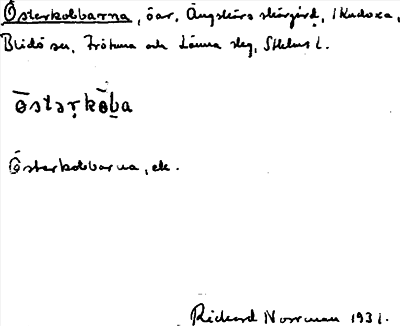 Österkobbarna, öar, Ängskärs skärgård, 1 Kudoxa,
Blidö sn, Frötuna och Länna skg, Sthlms l.
ōstərkōba
Österkobbarna, ek.
Rickard Norrman 1931.